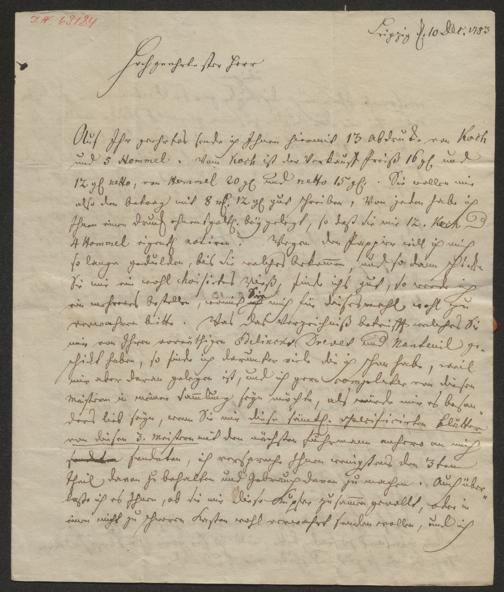 Leipzig d. 10 Dec. 1783
Hochgeehrtester Herr
Auf Ihr geehrtes sende ich Ihnen hiermit 13 Abdrucke von Koch
und 5 Hommel. Vom Koch ist der Verkaufs Preiß 16 gl und
12 gl netto, von Hommel 20 gl und netto 15 gl. Sie wollen mir
also den betrag mit 8 12 gl gut schreiben, Von jeden habe ich
Ihnen einen Druck beygelegt, so daß Sie mir 12. Koch
4 Hommel notiren. Wegen des Pappiers will ich mich
so lange gedulden, bis Sie welches bekommen, und so dann
Sie mir ein wohl Rieß, finde ichs gut, so werde ich
ein mehreres bestellen, Sie mich für dieses mahl wohl zu
verwahren bitte. Was das Verzeichniß betrifft, welches Sie
mir von Ihren vorräthigen Edelinck Drevet und Nanteuil ge-
schikt haben, so finde ich darunter viele die ich schon habe, weil
mir aber daran gelegen ist, und ich gern von diesen
Meistern in meiner Samlung seyn möchte, als würde mir es beson-
ders lieb seyn, wenn Sie mir diese sämtl. Blätter
von diesen 3. Meistern mit den nächsten Fuhrmann an mich
sendeten, ich verspreche Ihnen wenigstens den 3ten
Theil davon zu behalten und Gebrauch davon zu machen. Auch über-
laße ich es Ihnen, ob Sie mir diese Kupfer zusammen gerollt, oder in
einen nicht zu schweren Kasten wohl verwahrt senden wollen, und ich